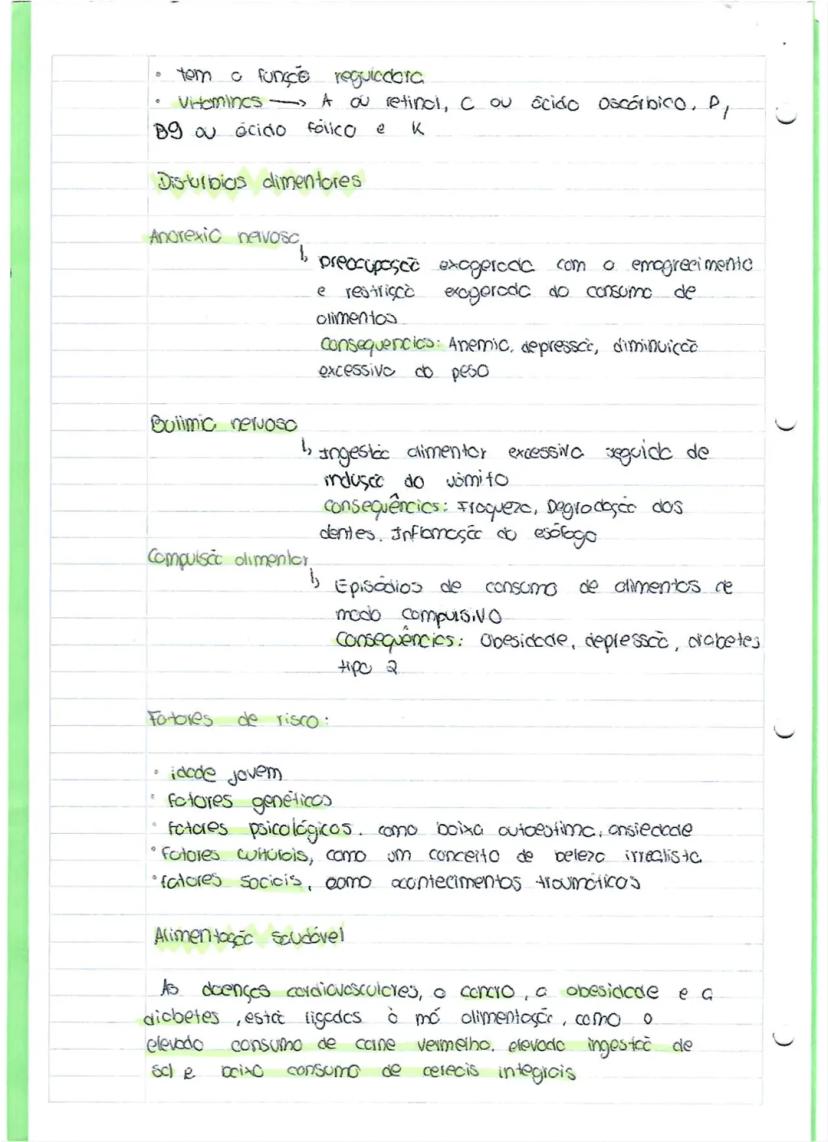 • tem a função reguladora
• Vitaminas → A ou retinol, C ou ácido ascórbico, D,
B9 ou ácido fólico e K
Distúrbios alimentares
Anorexia nervosa
↳ preocupação exagerada com o emagrecimento
e restrição exagerada do consumo de
alimentos
Consequencias: Anemia, depressão, diminuição
excessiva do peso
Bulimia nervosa
↳ Ingestão alimentar excessiva seguida de
indução do vómito
Consequências: Fraqueza, Degradação dos
dentes, Inflamação do esófago
Compulsão alimentar
↳ Episódios de consumo de alimentos de
modo compulsivo
Consequências: Obesidade, depressão, diabetes
tipo 2
Fatores de risco:
• idade jovem
• fatores genéticos
• fatores psicológicos, como baixa autoestima, ansiedade
• fatores culturais, como um conceito de beleza irrealista
• fatores sociais, como acontecimentos traumáticos
Alimentação saudável
As doenças cardiovasculares, o cancro, a obesidade e a
diabetes, estão ligadas à má alimentação, como o
elevado consumo de carne vermelha, elevada ingestão de
sal e baixo consumo de cereais integrais